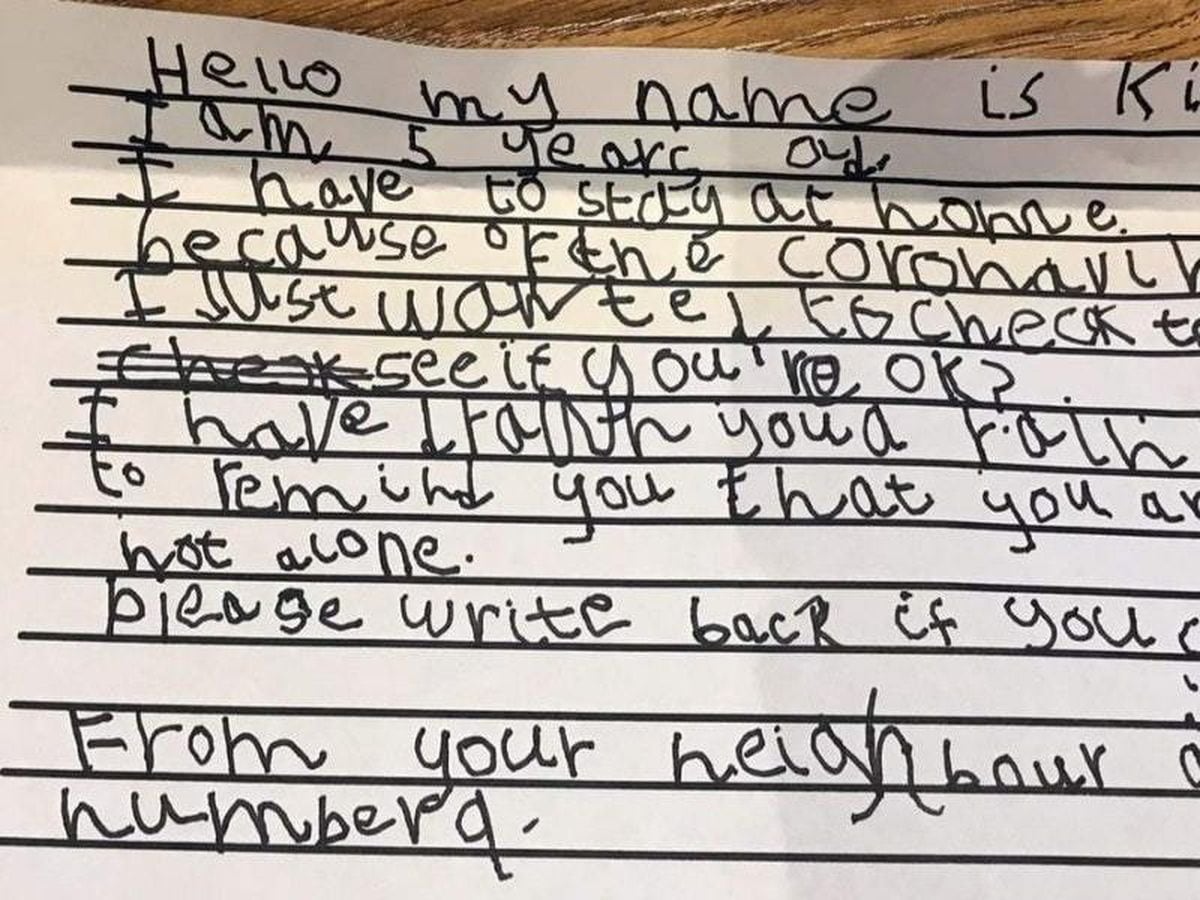 Hello my name is Ki
I am 5 years old.
I have to stay at home.
because of the coronavir
I just wanted to check to
check see if you're OK?
I have drawn you a rain
to remind you that you ar
not alone.
please write back if you c
From your neighbour a
number 9.